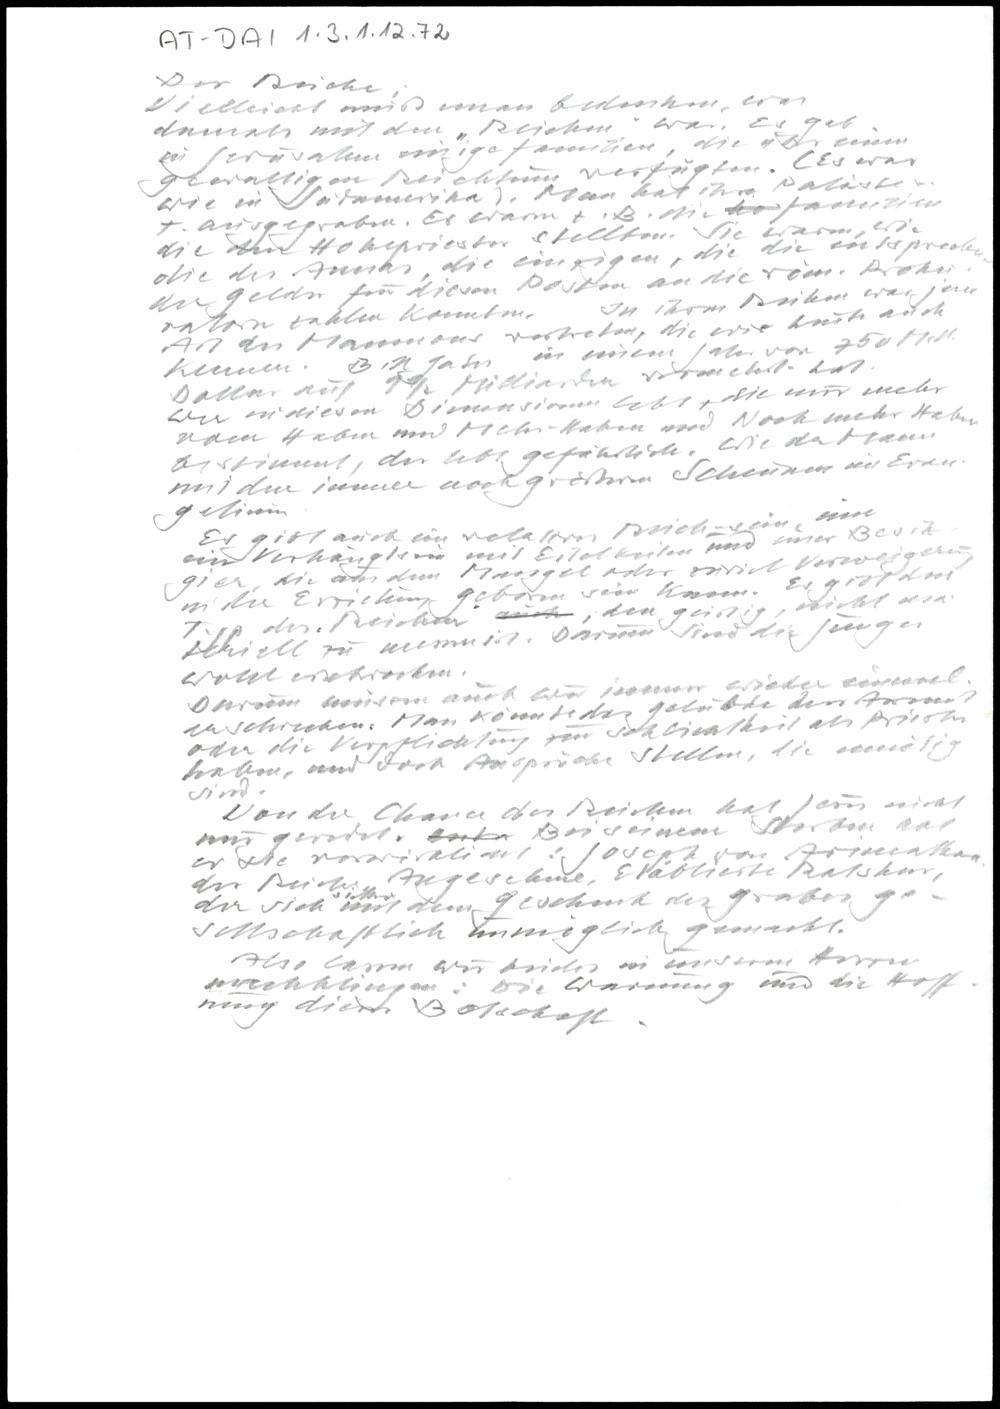 AT-DAI 1.3.1.12.72
Der Reiche:
Vielleicht muß man bedenken, was
damals mit den „Reichen" war. Es gab
in Jerusalem einige Familien, die über einen
gewaltigen Reichtum verfügten. (Es war
wie in Südamerika). Man hat ihre Paläste
z. T. ausgegraben. Es waren z. B. die Familien
die Hohepriester stellten. Sie waren, wie
die des Annas, die einzigen, die die entsprechen-
den Gelder für diesen Posten an die röm. Proku-
ratoren zahlen konnten. In ihren Reihen war jene
Art des Mammons vertreten, die wir heute auch
kennen. Bill Gates in einem Jahr von 750 Mill.
Dollar auf Milliarden vermehrt hat.
Wer in diesen Dimensionen lebt, die nur mehr
vom Haben und Mehr-Haben und Noch mehr Haben
bestimmt, der lebt gefährlich. Wie der Mann
mit den immer noch größeren Scheunen im Evan-
gelium
Es gibt auch ein relatives Reich-sein, eine
ein Verhängtsein mit Eitelkeiten und einer Besitz-
gier, die aus dem Mangel oder zuviel Verweigerung
in der Erziehung geboren sein kann. Es gibt den
Typ des „Reichen" auch, der geistig, nicht ma-
teriell zu nennen ist. Darum sind die Jünger
wohl erschrocken.
Darum müssen auch wir immer wieder einmal
erschrecken. Man könnte das Gelübde der Armut
oder die Verpflichtung zur Schlichtheit als Priester
haben, und doch Ansprüche stellen, die unnötig
sind.
Von der Chance des Reichen hat Jesus nicht
nur geredet. Bei seinem Sterben hat
er sie verwirklicht: Joseph von Arimathäa,
der Reiche, Angesehene, Etablierte Ratsherr,
der sich sicher mit dem Geschenk des Grabes ge-
sellschaftlich unmöglich gemacht.
Also lassen wir beides in unserem Herzen
nachklingen: Die Warnung und die Hoff-
nung dieser Botschaft.